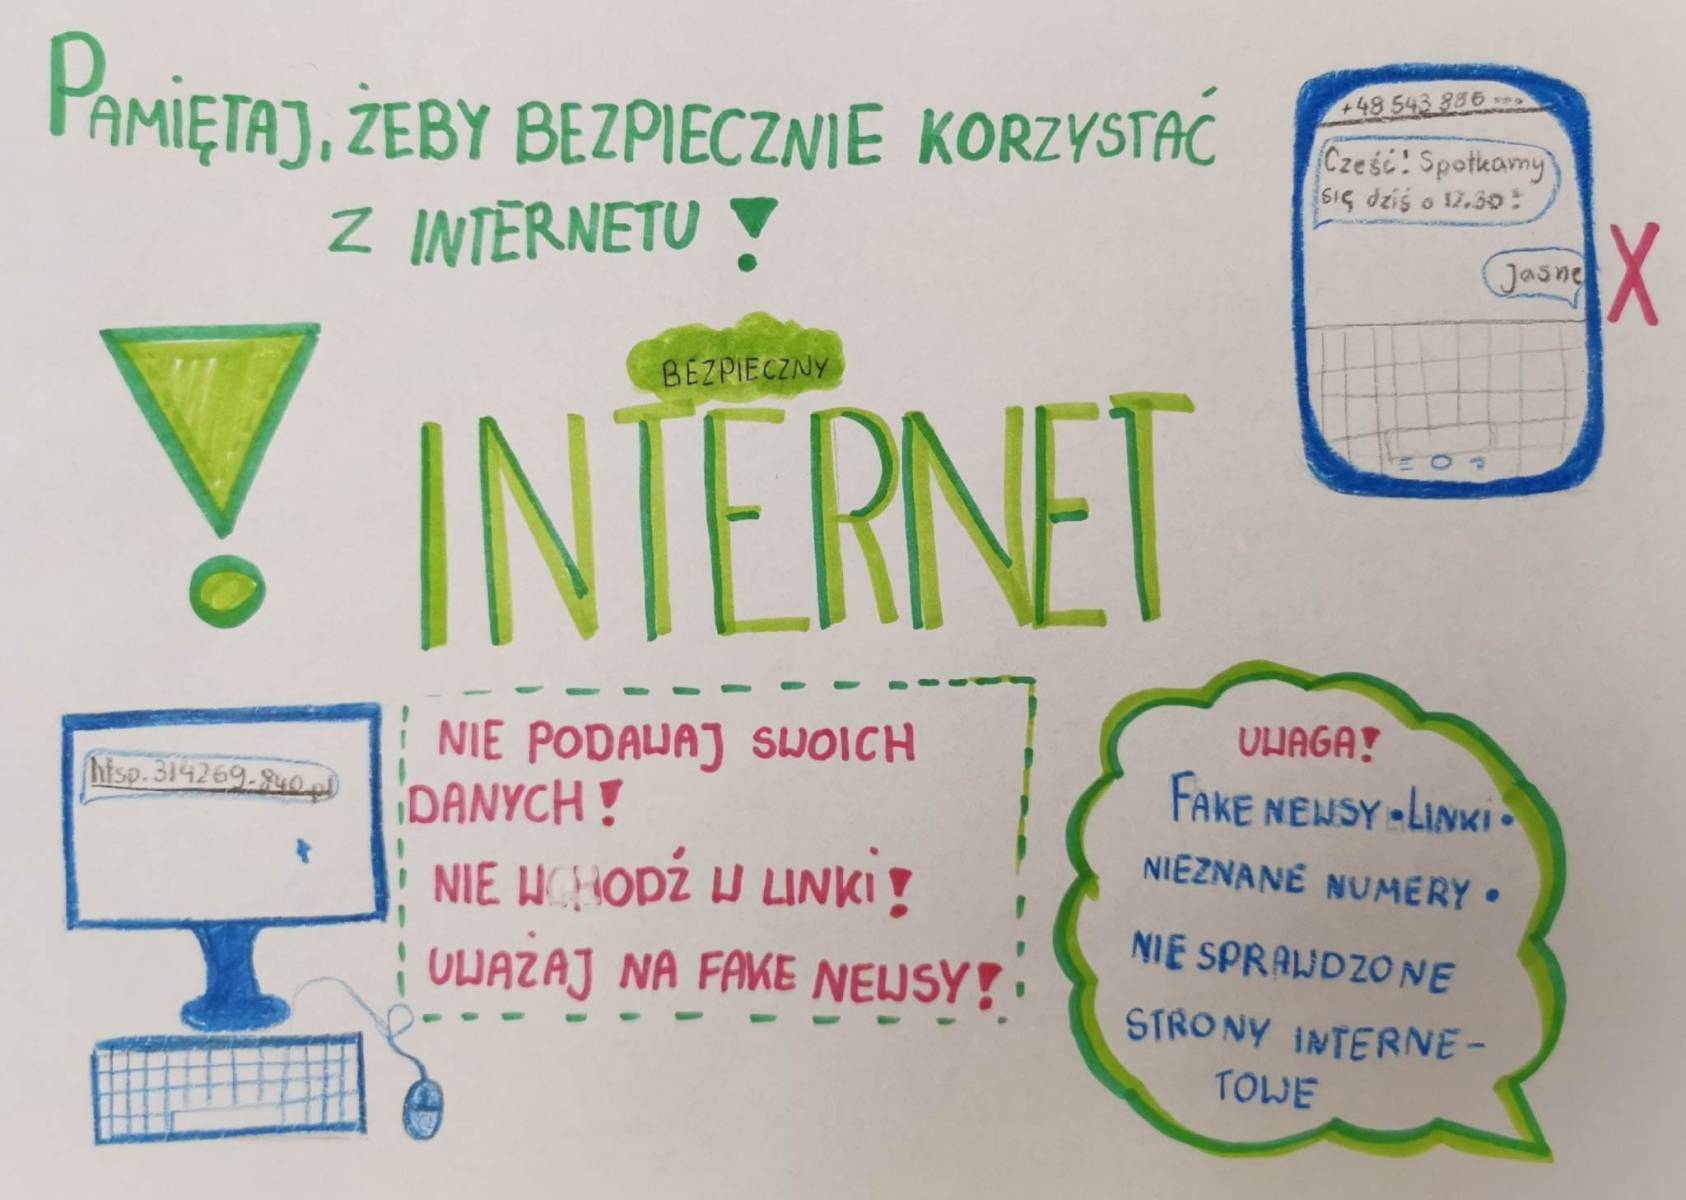 PAMIĘTAJ, ŻEBY BEZPIECZNIE KORZYSTAĆ
Z INTERNETU!
+48 543 886 ...
Cześć! Spotkamy
się dziś o 12.30?
jasne
X
!
BEZPIECZNY
INTERNET
hfsp.314269-840.pl
NIE PODAWAJ SWOICH
DANYCH!
NIE WCHODŹ W LINKI!
UWAŻAJ NA FAKE NEWSY!
UWAGA!
FAKE NEWSY • LINKI •
NIEZNANE NUMERY •
NIE SPRAWDZONE
STRONY INTERNE-
TOWE